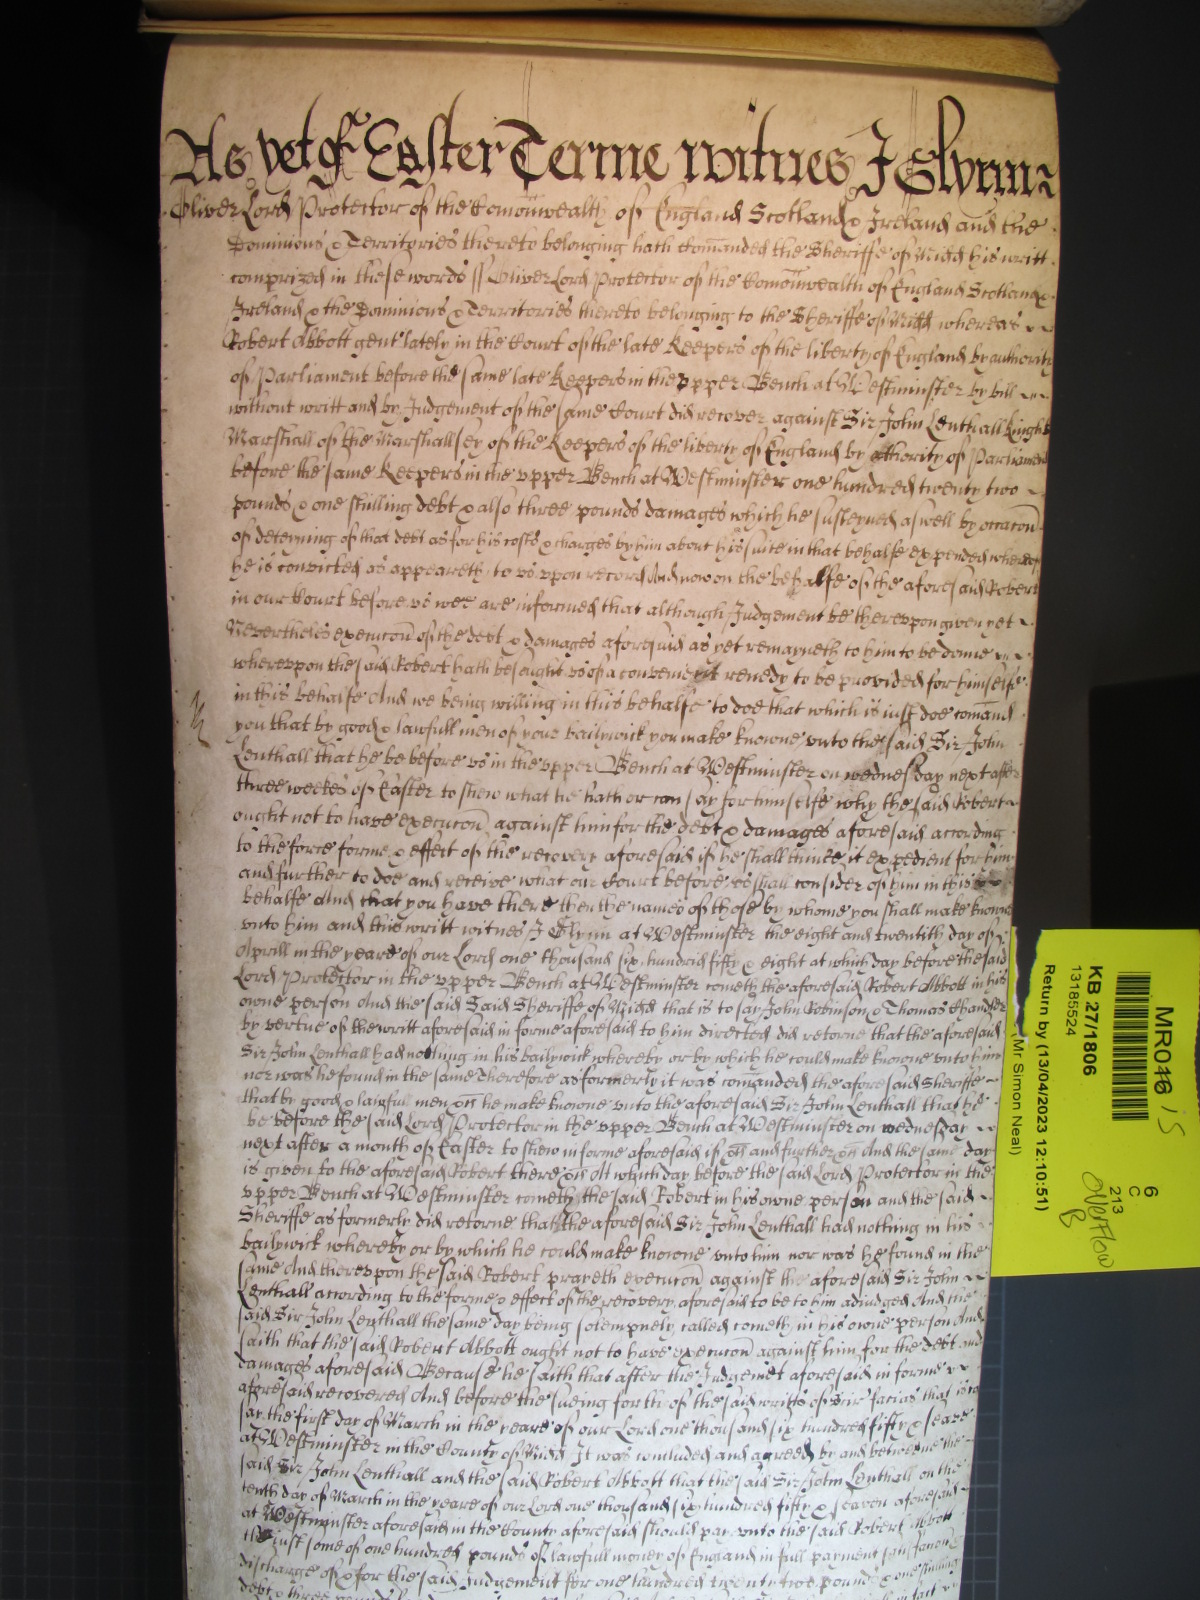 As yet of Easter Terme witnes J Glynn
Oliver Lord Protector of the Comonwealth of England Scotland & Ireland and the
Dominions & Territories thereto belonging hath Comanded the Sheriffe of Midd his writt
comprized in these words // Oliver Lord Protector of the Comonwealth of England Scotland &
Ireland & the Dominions & Territories thereto belonging to the Sheriffe of Midd whereas
Robert Abbott gent lately in the Court of the late Keepers of the liberty of England by authority
of Parliament before the same late Keepers in the vpper Bench at Westminster by bill
without writt and by Judgement of the same Court did recover against Sir John Lenthall Knight
Marshall of the Marshallsey of the Keepers of the liberty of England by athority of Parliament
before the same Keepers in the vpper Bench at Westminster one hundred twenty two
pounds & one shilling debt & also three pounds damages which he susteyned aswell by occacon
of deteyning of that debt as for his costs & charges by him about his suite in that behalfe expended whereof
he is convicted as appeareth to vs vpon record And now on the behalfe of the aforesaid Robert
in our Court before vs wee are informed that although Judgement be therevpon given yet
Neverthelesse execucon of the debt & damages aforesaid as yet remayneth to him to be donne
wherevpon the said Robert hath besought vs of a convenient remedy to be provided for himselfe
in this behalfe And we being willing in this behalfe to doe that which is iust doe comand
you that by good & lawfull men of your bailywick you make knowne vnto the said Sir John
Lenthall that he be before vs in the vpper Bench at Westminster on wednesday next after
three weekes of Easter to shew what he hath or can say for himselfe why the said Robert
ought not to have execucon against him for the debt & damages aforesaid according
to the force forme & effect of the recovery aforesaid if he shall thinke it expedient for him
and further to doe and receive what our Court before vs shall consider of him in this
behalfe And that you have there then the names of those by whome you shall make knowne
vnto him and this writt witnes J Glynn at Westminster the eight and twentith day of
Aprill in the yeare of our Lord one thousand six hundred fifty & eight at which day before the said
Lord Protector in the vpper Bench at Westminster cometh the aforesaid Robert Abbott in his
owne person And the said Said Sheriffe of Midd that is to say John Robinson & Thomas Chandler
by vertue of the writt aforesaid in forme aforesaid to him directed did retorne that the aforesaid
Sir John Lenthall had nothing in his bailywick whereby or by which he could make knowne vnto him
nor was he found in the same Therefore as formerly it was comanded the aforesaid Sheriffe
that by good & lawfull men &c he make knowne vnto the aforesaid Sir John Lenthall that he
be before the said Lord Protector in the vpper Bench at Westminster on wednesday
next after a month of Easter to shew in forme aforesaid if &c and further &c And the same day
is given to the aforesaid Robert there &c At which day before the said Lord Protector in the
vpper Bench at Westminster cometh the said Robert in his owne person and the said
Sheriffe as formerly did retorne that the aforesaid Sir John Lenthall had nothing in his
bailywick whereby or by which he could make knowne vnto him nor was he found in the
same And therevpon the said Robert prayeth execucon against the aforesaid Sir John
Lenthall according to the forme & effect of the recovery aforesaid to be to him adiudged And the
said Sir John Lenthall the same day being solempnely called cometh in his owne person And
saith that the said Robert Abbott ought not to have execucon against him for the debt and
damages aforesaid Because he saith that after the Judgemet aforesaid in forme
aforesaid recovered And before the sueing forth of the said writts of Scir facias that is to
say the first day of March in the yeare of our Lord one thousand six hundred fifty & seaven
at Westminster in the County of Midd It was concluded and agreed by and betweene the
said Sir John Lenthall and the said Robert Abbott that the said Sir John Lenthall on the
tenth day of March in the yeare of our Lord one thousand six hundred fifty & seaven aforesaid
at Westminster aforesaid in the County aforesaid should pay vnto the said Robert Abbott
the iust some of one hundred pounds of lawfull money of England in full payment
discharge of & for the said Judgement for one hundred twenty two pounds & one shilling
debt & three pounds
MR016 15
KB 27/1806
13185524
Return by (13/04/2023 12:10:51)
(Mr Simon Neal)
6
C
213
Overflow
B